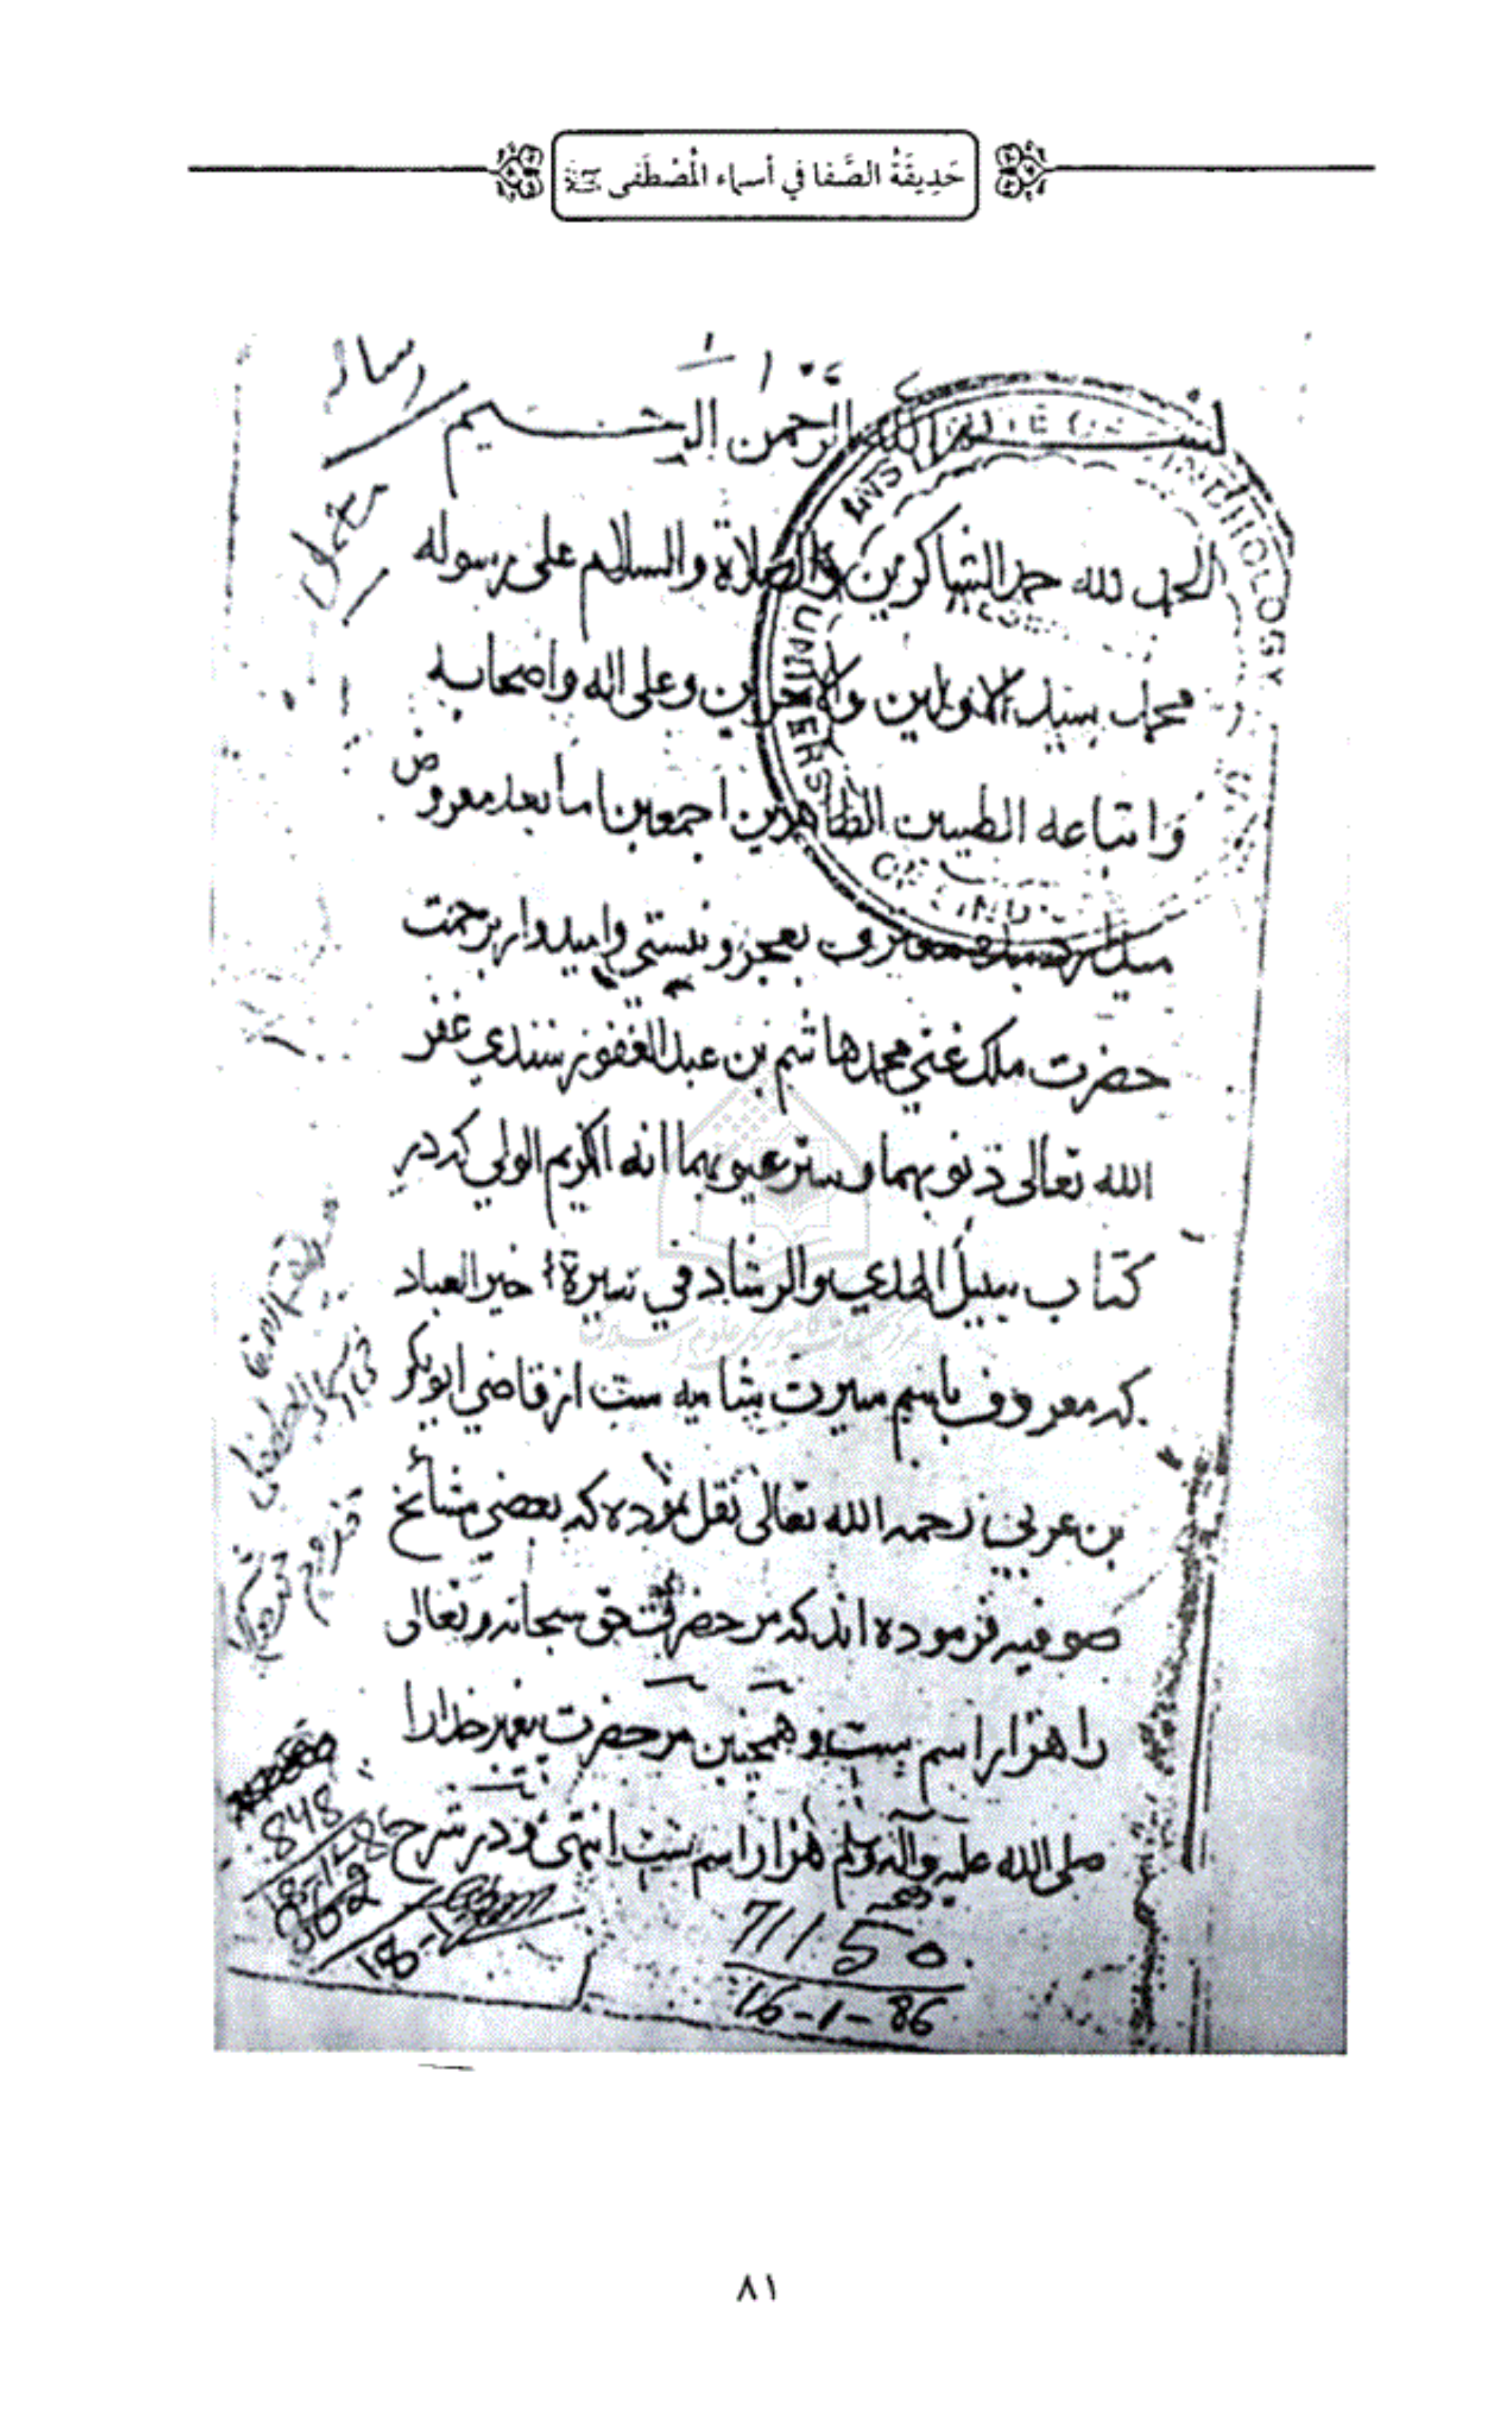 حَدِيقَةُ الصَّفا في أسماء المُصْطَفى ﷺ
بسم الله الرحمن الرحيم
الحمد لله حمد الشاكرين والصلاة والسلام على رسوله
محمد سيد الاولين والاخرين وعلى اله واصحابه
واتباعه الطيبين الطاهرين اجمعين اما بعد معروض
ميدارد بعجز ونيستي واميدوار برحمت
حضرت ملك غني محمد هاشم بن عبد الغفور سندي غفر
الله تعالى ذنوبهما وستر عيوبهما انه الكريم الولي كه در
كتاب سبيل الهدي والرشاد في سيرة خير العباد
كه معروف باسم سيرت شاميه ست از قاضي ابو بكر
بن عربي رحمه الله تعالى نقل نموده كه بعضي مشائخ
صوفيه فرموده اند كه مر حضرت حق سبحانه وتعالى
را هزار اسم ست و همچنين مر حضرت پيغمبر خدا را
صلى الله عليه وآله وسلم هزار اسم ست انتهى ودر شرح
INSTITUTE OF SINDHOLOGY
UNIVERSITY OF SIND
848
18-1-86
902
71150
16-1-86
٨١